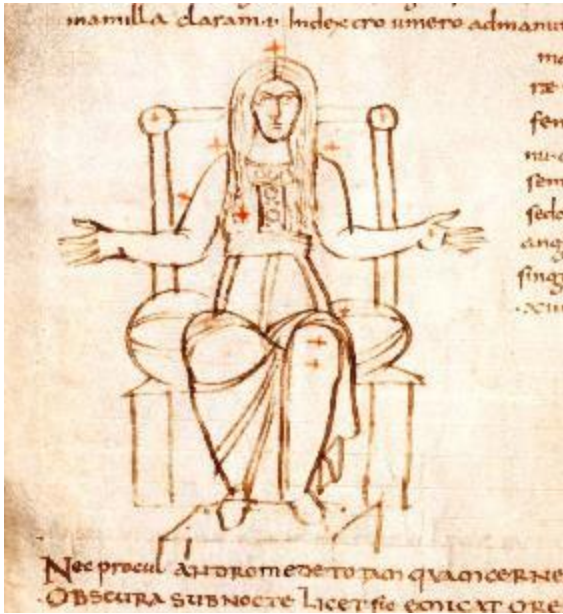 mamilla claram .i. Indextro umero admanu
sem
sedo
ang
sing
Nec procul ANDROMEDE TOTAM QUAM CERNE
OBSCURA SUBNOCTE LICET sic EMICAT ORE